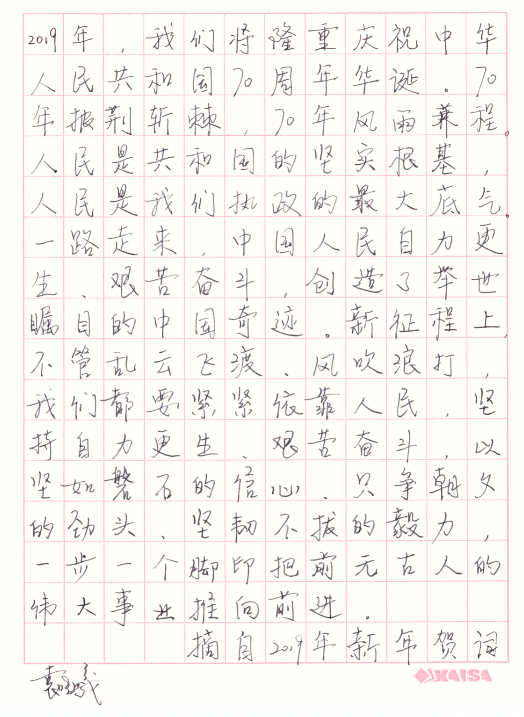 2019年，我们将隆重庆祝中华
人民共和国70周年华诞。70
年披荆斩棘，70年风雨兼程。
人民是共和国的坚实根基，
人民是我们执政的最大底气。
一路走来，中国人民自力更
生、艰苦奋斗，创造了举世
瞩目的中国奇迹。新征程上，
不管乱云飞渡、风吹浪打，
我们都要紧紧依靠人民，坚
持自力更生、艰苦奋斗，以
坚如磐石的信心、只争朝夕
的劲头、坚韧不拔的毅力，
一步一个脚印把前无古人的
伟大事业推向前进。
摘自2019年新年贺词
KAISA